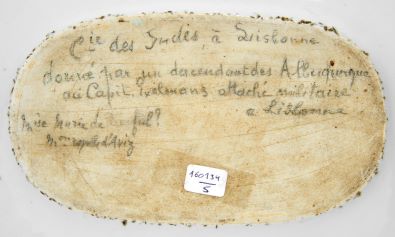 Cie des Indes, à Lisbonne
donné par un descendant des Albuquerque
au Capit. attaché militaire
a Lisbonne
Marie de
160134
5